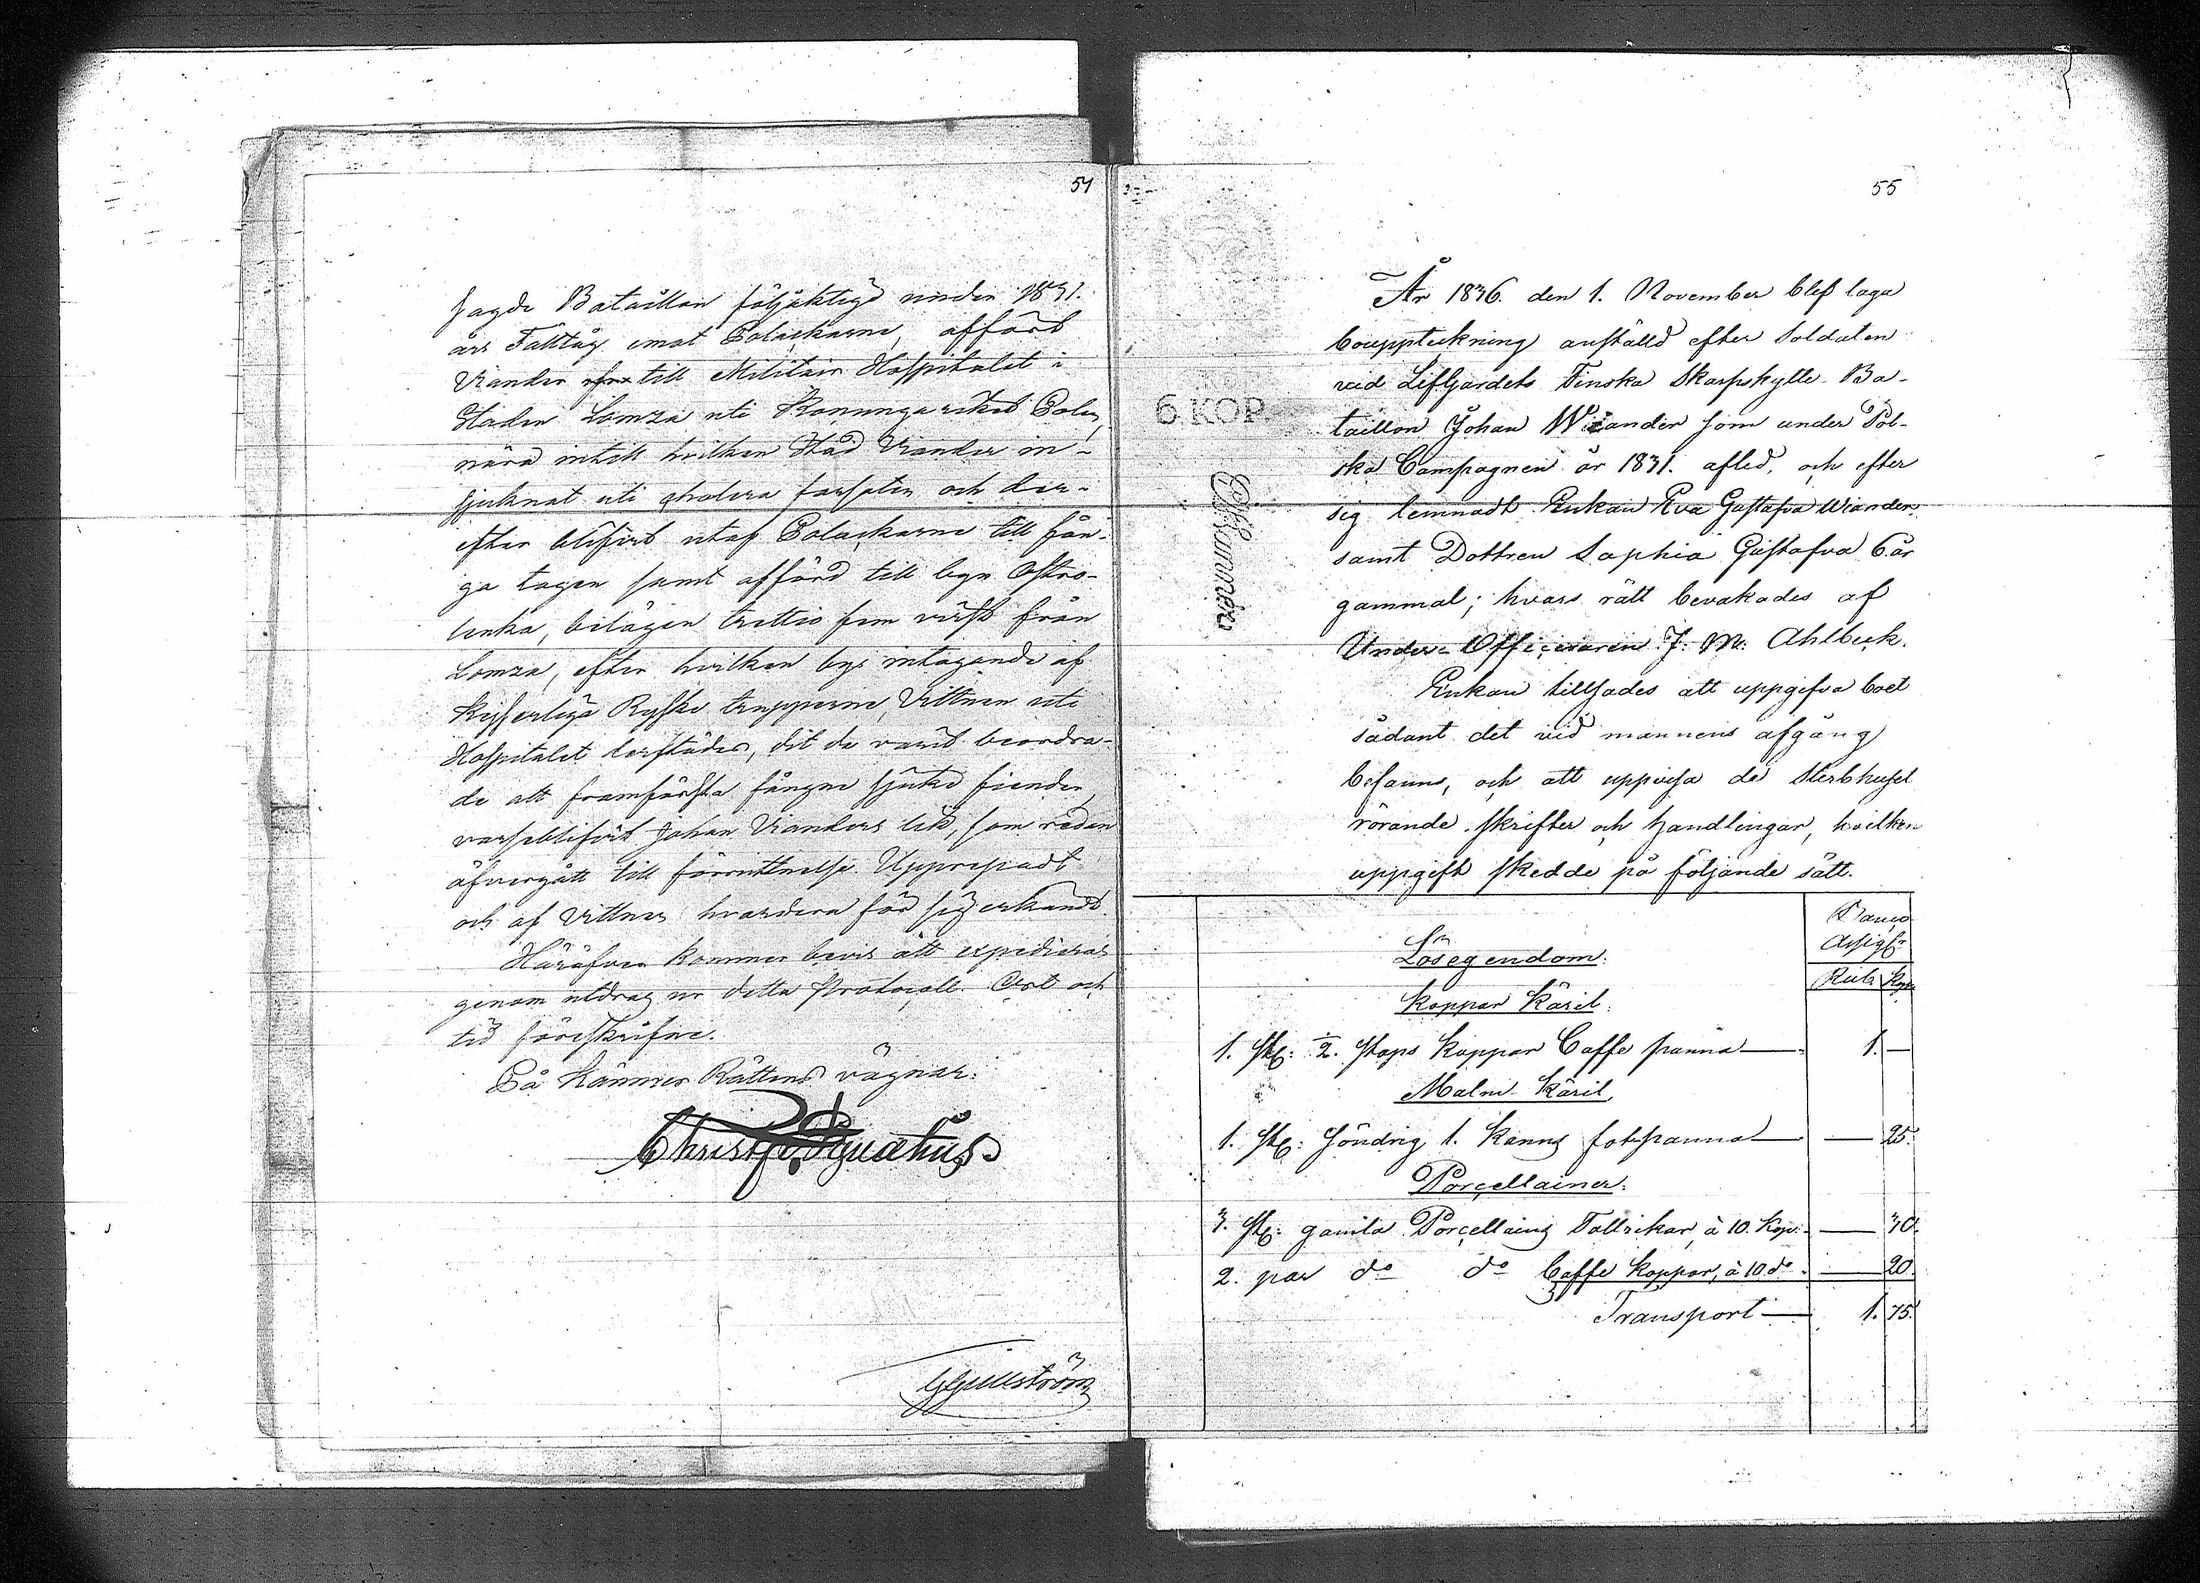 54
sagde Bataillon följaktigt under 1831.
års Fälttåg emot Polackarne, affört
Viander till Militair Hospitalet i
Staden Lomza uti Konungariket Polen,
nära intill hvilken Stad Viander in-
sjuknat uti cholera farsoten och der-
efter blifvit utaf Polackarne till fån-
ga tagen samt afförd till byn Ostro-
lenka, belägen trettio fem verst från
Lomza, efter hvilken bys intagande af
Kejserliga Ryska trupperne, Vittnen uti
Hospitalet derstädes, dit de varit beordra-
de att framförska fångne sjuke fiender,
varseblifvit Johan Vianders lik, som redan
öfvergått till förruttnelse. Upprepadt
och af Vittnen hvardera för sig erkändt.
Häröfver kommer bevis att expedieras
genom utdrag ur detta Protocoll. Ort och
tid föreskrifne.
På Kämners Rättens vägnar:
Christf. Ignatius
GGullström
55
6 KOP.
År 1836. den 1. November blef laga
bouppteckning anställd efter Soldaten
vid Lifgardets Finska Skarpskytte-Ba-
taillon Johan Wiander som under Pol-
ska Campagnen år 1831. afled, och efter
sig lemnadt Enkan Eva Gustafva Wiander
samt Dottren Sophia Gustafva 6 år
gammal; hvars rätt bevakades af
Under-Officeraren J. M. Ahlbeck.
Enkan tillsades att uppgifva boet
sådant det vid mannens afgång
befanns, och att uppvisa de Sterbhuset
rörande skrifter och handlingar, hvilken
uppgift skedde på följande sätt.
Banco
Assig:r
Rub. Kop.
Lösegendom:
Koppar Käril.
1. st: 1/2. stops Koppar Caffe panna — 1. —
Malm Käril,
1. st: söndrig 1. Kanns fotspanna — — 25.
Porcellainer:
3. st: gamla Porcellains Tallrikar, à 10. Kop: — 30.
2. par do do Caffe Koppar, à 10. do — 20.
Transport — 1. 75.